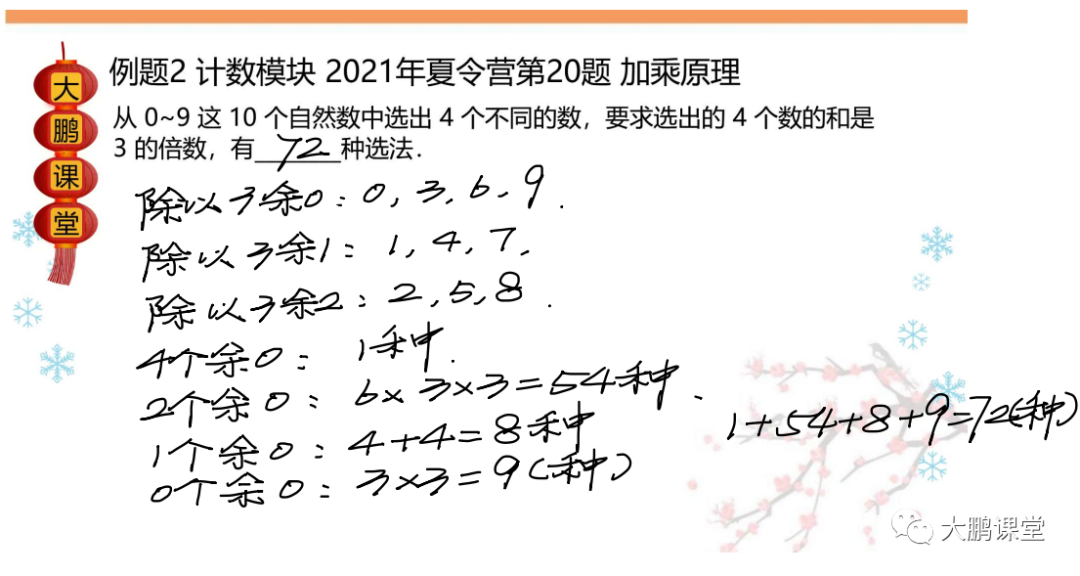 大鹏课堂
例题2 计数模块 2021年夏令营第20题 加乘原理
从 0~9 这 10 个自然数中选出 4 个不同的数，要求选出的 4 个数的和是
3 的倍数，有72种选法.
除以3余0：0, 3, 6, 9.
除以3余1：1, 4, 7.
除以3余2：2, 5, 8.
4个余0：1种.
2个余0：6×3×3=54种.
1个余0：4+4=8种
0个余0：3×3=9(种)
1+54+8+9=72(种)
大鹏课堂